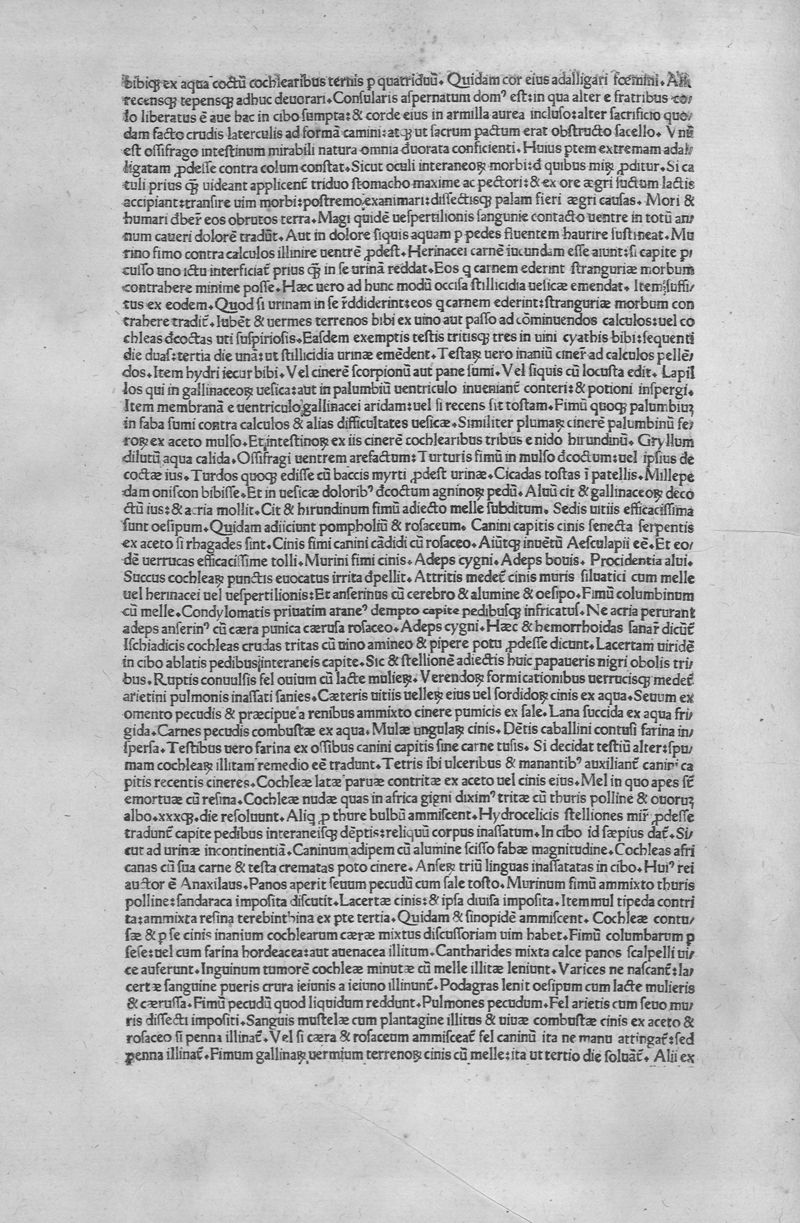 bibiq; ex aqua coctū cochlearibus ternis p quatriduū. Quidam cor eius adalligari fœmini.
recensq; tepensq; adhuc deuorari. Consularis aspernatum dom⁹ est: in qua alter e fratribus co/
lo liberatus ē aue hac in cibo sumpta: & corde eius in armilla aurea incluso: alter sacrificio quo/
dam facto crudis laterculis ad formā camini: atq; ut sacrum pactum erat obstructo sacello. Vnū
est ossifrago intestinum mirabili natura omnia duorata conficienti. Huius ptem extremam adal/
ligatam ꝓdesse contra colum constat. Sicut oculi interaneoꝝ morbi: d quibus miꝝ ꝓditur. Si ca
tuli prius q̄ uideant applicenť triduo stomacho maxime ac pectori: & ex ore ægri suctum lactis
accipiant: transire uim morbi: postremo exanimari: dissectisq; palam fieri ægri causas. Mori &
humari dber̃ eos obrutos terra. Magi quidē uespertilionis sanguine contacto uentre in totū an/
num caueri dolorē tradūt. Aut in dolore siquis aquam p pedes fluentem haurire sustineat. Mu
rino fimo contra calculos illinire uentrē ꝓdest. Herinacei carnē iucundam esse aiunt: si capite p/
cusso uno ictu interficiať prius q̄ in se urinā reddat. Eos q carnem ederint stranguriæ morbum
contrahere minime posse. Hæc uero ad hunc modū occisa stillicidia uesicæ emendat. Item: suffi/
tus ex eodem. Quod si urinam in se r̃ddiderint: eos q carnem ederint: stranguriæ morbum con
trahere tradiť. Iubēt & uermes terrenos bibi ex uino aut passo ad cōminuendos calculos: uel co
chleas dcoctas uti suspiriosis. Easdem exemptis testis tritisq; tres in uini cyathis bibi: sequenti
die duas: tertia die unā: ut stillicidia urinæ emēdent. Testaꝝ uero inaniū ciner̃ ad calculos pellē/
dos. Item hydri iecur bibi. Vel cinerē scorpionū aut pane sumi. Vel siquis cū locusta edit. Lapil
los qui in gallinaceoꝝ uesica: aut in palumbiū uentriculo inuenianť conteri: & potioni inspergi.
Item membranā e uentriculo gallinacei aridam: uel si recens sit tostam. Fimū quoq; palumbiuꝫ
in faba sumi contra calculos & alias difficultates uesicæ. Similiter plumaꝝ cinerē palumbinū fe/
roꝝ ex aceto mulso. Et intestinoꝝ ex iis cinerē cochlearibus tribus e nido hirundinū. Gryllum
dilutū aqua calida. Ossifragi uentrem arefactum: Turturis fimū in mulso dcoctum: uel ipsius de
coctæ ius. Turdos quoq; edisse cū baccis myrti ꝓdest urinæ. Cicadas tostas ī patellis. Millepe
dam oniscon bibisse. Et in uesicæ dolorib⁹ dcoctum agninoꝝ pedū. Aluū cit & gallinaceoꝝ deco
ctū ius: & acria mollit. Cit & hirundinum fimū adiecto melle subditum. Sedis uitiis efficacissima
sunt oesipum. Quidam adiiciunt pompholiū & rosaceum. Canini capitis cinis senecta serpentis
ex aceto si rhagades sint. Cinis fimi canini cādidi cū rosaceo. Aiūtq; inuētū Aesculapii eē. Et eo/
dē uerrucas efficacissime tolli. Murini fimi cinis. Adeps cygni. Adeps bouis. Procidentia alui.
Succus cochleaꝝ punctis euocatus irrita dpellit. Attritis medeť cinis muris siluatici cum melle
uel herinacei uel uespertilionis: Et anserinus cū cerebro & alumine & oesipo. Fimū columbinum
cū melle. Condylomatis priuatim arane⁹ dempto capite pedibusq; infricatus. Ne acria perurant
adeps anserin⁹ cū cæra punica cærusa rosaceo. Adeps cygni. Hæc & hemorrhoidas sanar̃ dicūť
Ischiadicis cochleas crudas tritas cū uino amineo & pipere potu ꝓdesse dicunt. Lacertam uiridē
in cibo ablatis pedibus interaneis capite. Sic & stellionē adiectis huic papaueris nigri obolis tri/
bus. Ruptis conuulsis fel ouium cū lacte mulieꝝ. Verendoꝝ formicationibus uerrucisq; medeť
arietini pulmonis inassati sanies. Cæteris uitiis uelleꝝ eius uel sordidoꝝ cinis ex aqua. Seuum ex
omento pecudis & præcipue a renibus ammixto cinere pumicis ex sale. Lana succida ex aqua fri/
gida. Carnes pecudis combustæ ex aqua. Mulæ ungulaꝝ cinis. Dētis caballini contusi farina in/
spersa. Testibus uero farina ex ossibus canini capitis sine carne tusis. Si decidat testiū alter: spu/
mam cochleaꝝ illitam remedio eē tradunt. Tetris ibi ulceribus & manantib⁹ auxilianť canini ca
pitis recentis cineres. Cochleæ latæ paruæ contritæ ex aceto uel cinis eius. Mel in quo apes sť
emortuæ cū resina. Cochleæ nudæ quas in africa gigni dixim⁹ tritæ cū thuris polline & ouoruꝫ
albo. xxxq; die resoluunt. Aliq p thure bulbū ammiscent. Hydrocelicis stelliones mir̃ ꝓdesse
tradunť capite pedibus interaneisq; dēptis: reliquū corpus inassatum. In cibo id sæpius dať. Si/
cut ad urinæ incontinentiā. Caninum adipem cū alumine scisso fabæ magnitudine. Cochleas afri
canas cū sua carne & testa crematas poto cinere. Anseꝝ triū linguas inassatatas in cibo. Hui⁹ rei
auctor ē Anaxilaus. Panos aperit seuum pecudū cum sale tosto. Murinum fimū ammixto thuris
polline: sandaraca imposita discutit. Lacertæ cinis: & ipsa diuisa imposita. Item mul tipeda contri
ta: ammixta resina terebinthina ex pte tertia. Quidam & sinopidē ammiscent. Cochleæ contu/
sæ & p se cinis inanium cochlearum cæræ mixtus discussoriam uim habet. Fimū columbarum p
sese: uel cum farina hordeacea: aut auenacea illitum. Cantharides mixta calce panos scalpelli ui/
ce auferunt. Inguinum tumorē cochleæ minutæ cū melle illitæ leniunt. Varices ne nascanť: la/
certæ sanguine pueris crura ieiunis a ieiuno illinunť. Podagras lenit oesipum cum lacte mulieris
& cærussa. Fimū pecudū quod liquidum reddunt. Pulmones pecudum. Fel arietis cum seuo mu/
ris dissecti impositi. Sanguis mustelæ cum plantagine illitus & uiuæ combustæ cinis ex aceto &
rosaceo si penna illinať. Vel si cæra & rosaceum ammisceať fel caninū ita ne manu attingať: sed
penna illinať. Fimum gallinaꝝ uermium terrenoꝝ cinis cū melle: ita ut tertio die soluāť. Alii ex